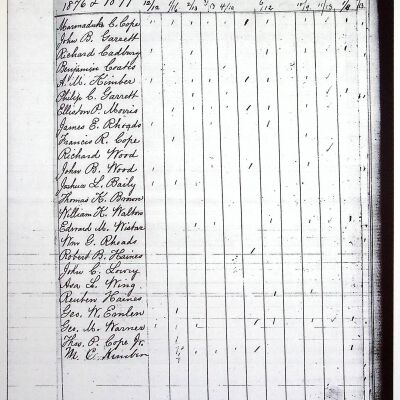 1876 & 1877 12/12
Marmaduke C. Cope
John B. Garrett
Richard Cadbury
Benjamin Coates
A. M. Kimber
Philip C. Garrett
Elliston P. Morris
James E. Rhoads
Francis R. Cope
Richard Wood
John B. Wood
Joshua L. Baily
Thomas K. Brown
William K. Walton
Edward M. Wistar
Wm G. Rhoads
Robert B. Haines
John C. Lowry
Asa L. Wing
Reuben Haines
Geo. W. Emlen
Geo. M. Warner
Thos. P. Cope Jr.
M. C. Kimber